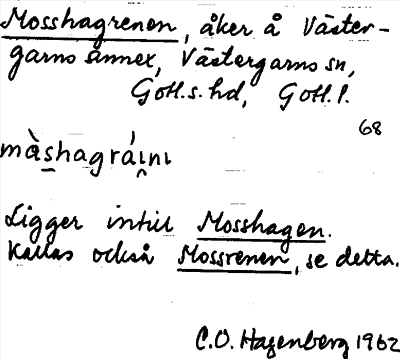 Mosshagrenen, åker å Väster-
garns annex, Västergarns sn,
Gotl. s. hd, Gotl. l.
68
màs̱hagrái̯nı
Ligger intill Mosshagen.
Kallas också Mossrenen, se detta.
C.O. Hagenberg 1962